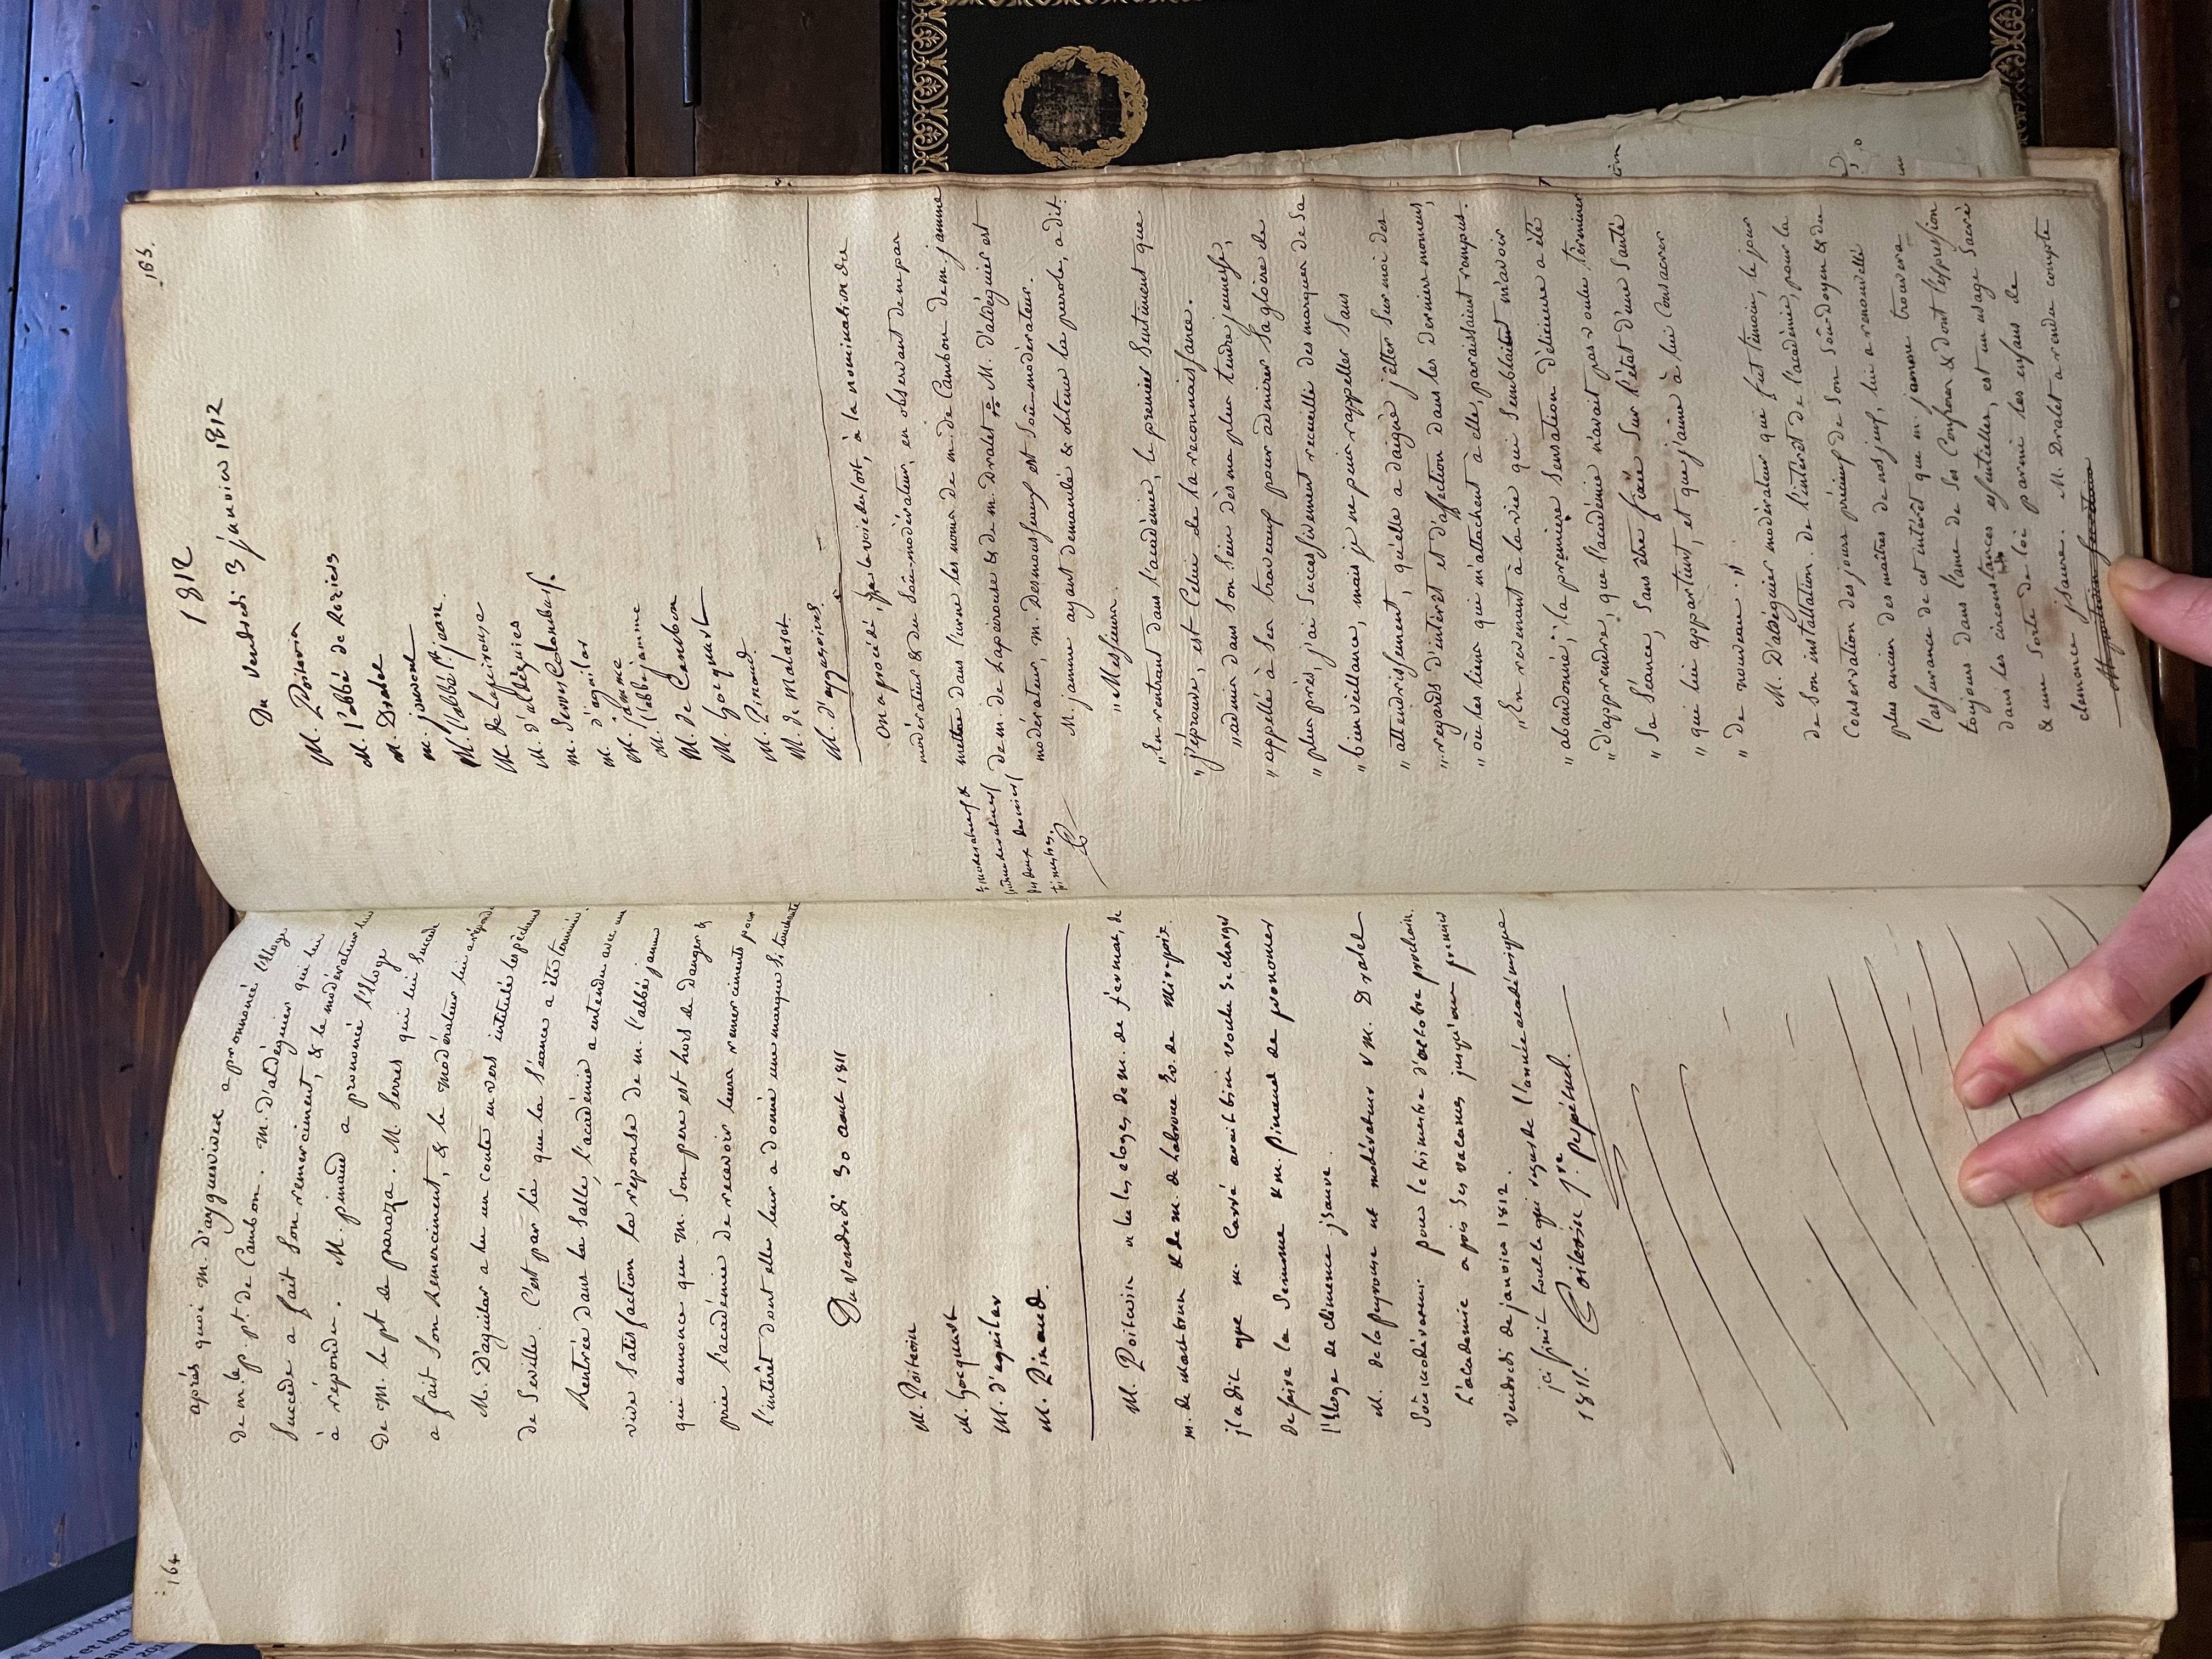 164
après quoi m. D'ayguesvives a prononcé l'éloge
de m. le p. pt. de Cambon. M. d'aldéguier qui lui
succède a fait son remerciment, & le modérateur lui
a répondu. M. pinaud a prononcé l'éloge
de M. le pt de paraza. M. Serres qui lui succède
a fait son remerciment, & le modérateur lui a répondu
M. D'aguilar a lu un conte en vers intitulé les pêcheurs
de Séville. C'est par là que la séance a été terminée.
Rentrée dans la salle, l'académie a entendu avec une
vive satisfaction la réponse de m. l'abbé jamme
qui annonce que m. son pere est hors de danger &
prie l'académie de recevoir leurs remerciments pour
l'intérêt dont elle leur a donné une marque si touchante
Du vendredi 30 aout 1811
M. Poitevin
M. Gocquart
M. d'aguilar
M. Pinaud.
M. Poitevin a lu les éloges de m. de fermat, de
m. de montbrun & de m. de labroue Ev. de Mirepoix.
il a dit que m. Carré avait bien voulu se charger
de faire la Semonce & m. Pinaud de prononcer
l'éloge de clémence jsaure.
M. de lapeyrouse est modérateur & M. Dralet
Sous-modérateur pour le trimestre d'octobre prochain.
L'académie a pris ses vacances jusqu'au premier
vendredi de janvier 1812.
ici finit tout ce qui regarde l'année académique
1811. Poitevin Sre. perpétuel.
165.
1812
Du Vendredi 3 janvier 1812
M. Poitevin
M. l'abbé de Roziers
M. Dralet
m. jouvent
M. l'abbé St. jean.
M. de lapeirouse
M. d'aldéguier
m. Serres Colombars.
m. d'aguilar
M. jamme
M. l'abbé jamme
M. de Cambon
M. Gocquart
M. Pinaud.
M. de Malaret.
M. d'ayguesvives.
On a procédé, par la voie du sort, à la nomination du
modérateur & du Sous-modérateur, en observant de ne pas
mettre dans l'urne les noms de m. de Cambon de m. jamme
de m. de Lapeirouse & de m. Dralet M. d'aldéguier est
modérateur, m. Desmousseaux est Sous-modérateur.
modérateurs &
sousmodérateurs
des deux derniers
trimestres.
M. jamme ayant demandé & obtenu la parole, a dit:
" Messieurs.
" En rentrant dans l'académie, le premier sentiment que
" j'éprouve, est celui de la reconnaissance.
" admis dans son sein dès ma plus tendre jeunesse,
" appellé à ses travaux pour admirer sa gloire de
" plus près, j'ai successivement recueilli des marques de sa
" bienveillance, mais je ne puis rappeller sans
" attendrissement, qu'elle a daigné jetter sur moi des
" regards d'intérêt et d'affection dans les derniers momens,
" où les liens qui m'attachent à elle, paraissaient rompus.
" En revenant à la vie qui semblait m'avoir
" abandonné; la première sensation délicieuse a été
" d'apprendre, que l'académie n'avait pas voulu terminer
" sa séance, sans être fixée sur l'état d'une santé
" qui lui appartient, et que j'aime à lui consacrer
" de nouveau."
M. D'aldéguier modérateur que fut témoin, le jour
de son installation de l'intérêt de l'académie, pour la
conservation des jours précieux de son Sous-doyen & du
plus ancien des maîtres de nos jeux, lui a renouvellé
l'assurance de cet intérêt que m. jamme trouvera
toujours dans l'ame de ses Confreres & dont l'expression
dans les circonstances essentielles, est un usage sacré
& une sorte de loi parmi les enfans de
clemence jsaure. M. Dralet a rendu compte